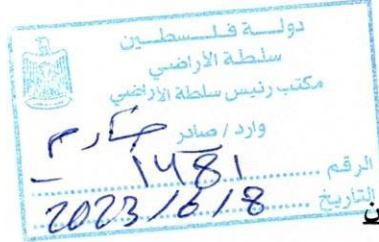 دولة فلسطين
سلطة الأراضي
مكتب رئيس سلطة الأراضي
وارد / صادر
الرقم 1481
التاريخ 2023/6/8
ن